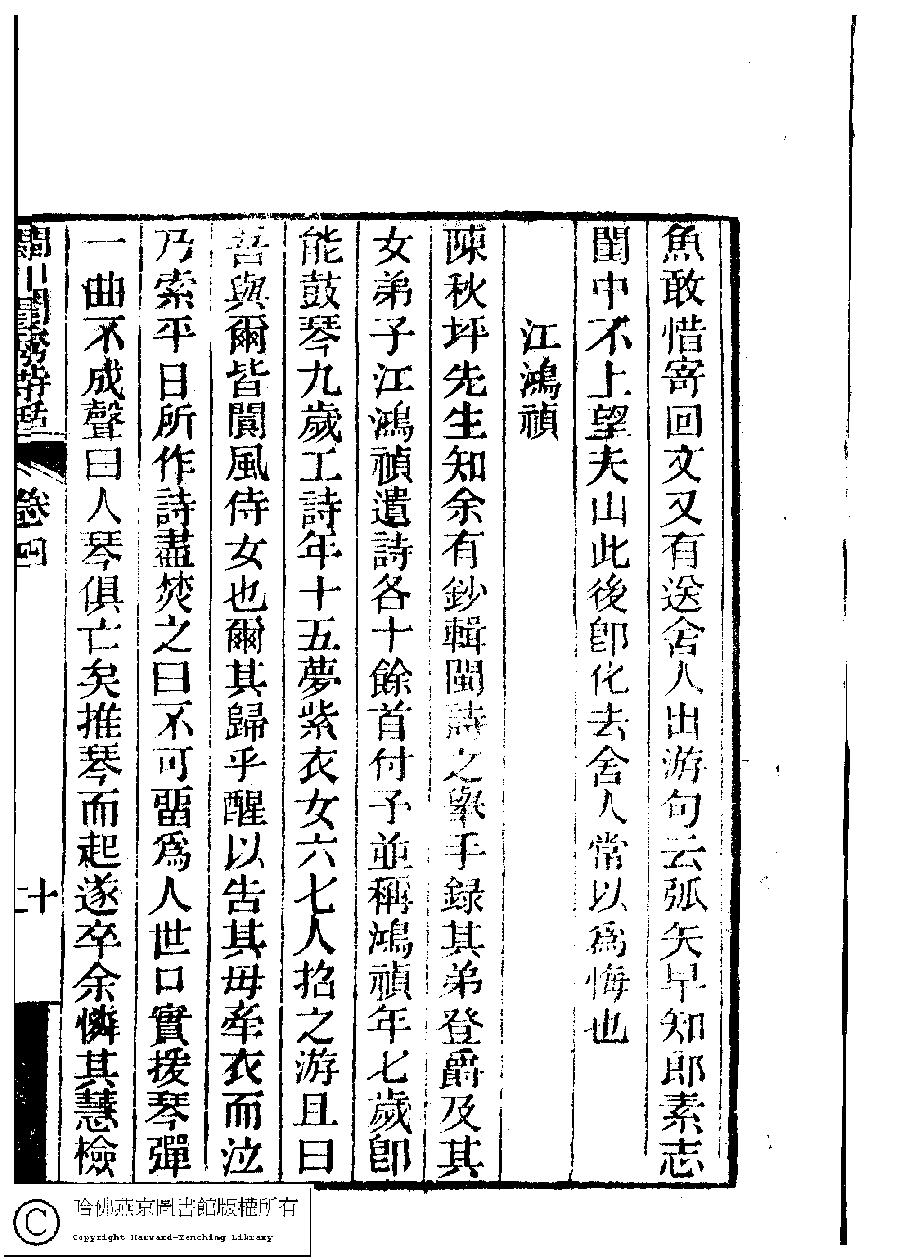 魚敢惜寄回文又有送舍人出游句云弧矢早知郎素志
閨中不上望夫山此後卽化去舍人常以爲悔也
江鴻禎
陳秋坪先生知余有鈔輯閩詩之舉手録其弟登爵及其
女弟子江鴻禎遺詩各十餘首付予並稱鴻禎年七歲卽
能鼓琴九歲工詩年十五夢紫衣女六七人招之游且曰
吾與爾皆閬風侍女也爾其歸乎醒以告其母牽衣而泣
乃索平日所作詩盡焚之曰不可畱爲人世口實援琴彈
一曲不成聲曰人琴俱亡矣推琴而起遂卒余憐其慧檢
閩川閨秀詩話
卷四
十
哈佛燕京圖書館版權所有
Copyright Harvard-Yenching Library